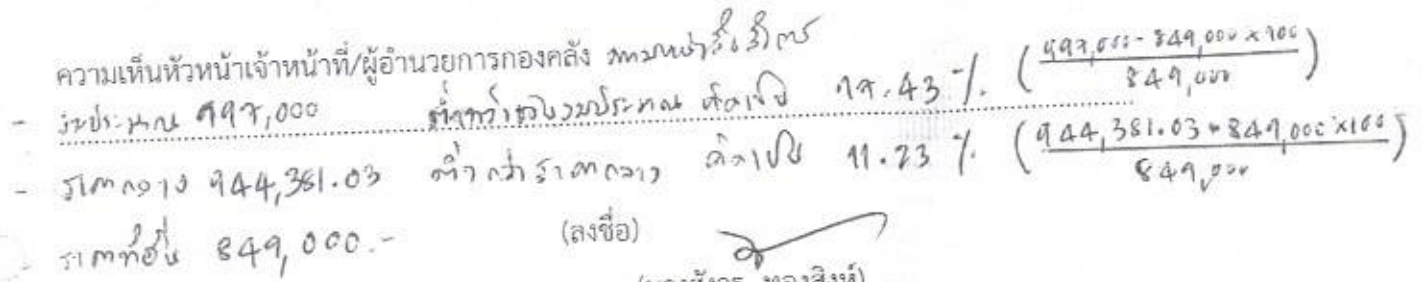 ความเห็นหัวหน้าเจ้าหน้าที่/ผู้อำนวยการกองคลัง
- งบประมาณ 997,000 ต่ำกว่าวงเงินงบประมาณ คิดเป็น 17.43 % (997,000 - 849,000 x 100 / 849,000)
- ราคากลาง 944,381.03 ต่ำกว่าราคากลาง คิดเป็น 11.23 % (944,381.03 - 849,000 x 100 / 849,000)
- ราคาที่ยื่น 849,000.-
(ลงชื่อ)
ทองสิงห์)